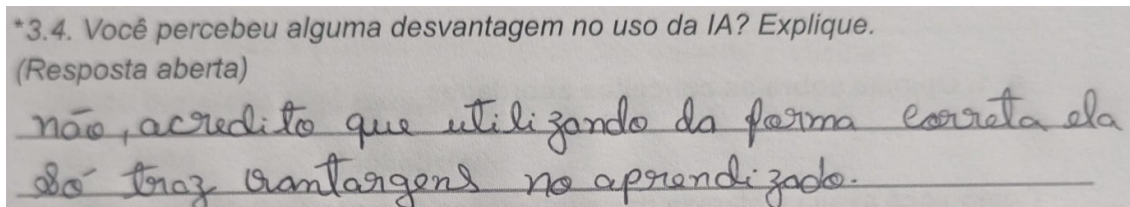 *3.4. Você percebeu alguma desvantagem no uso da IA? Explique.
(Resposta aberta)
não, acredito que utilizando da forma correta ela
só traz vantangens no aprendizado.